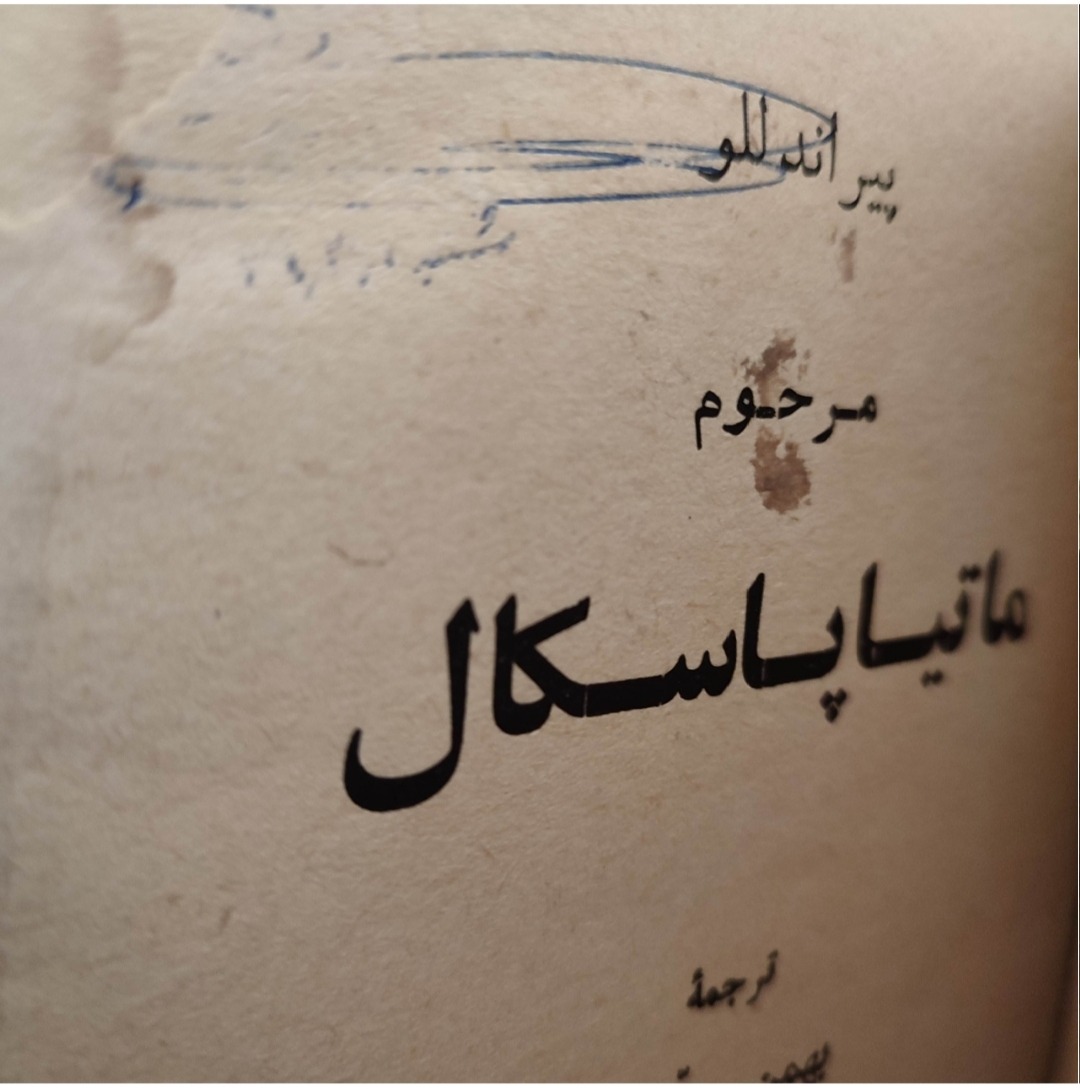 پیراندللو
مرحوم
ماتیا پاسکال
ترجمهٔ
بهمن